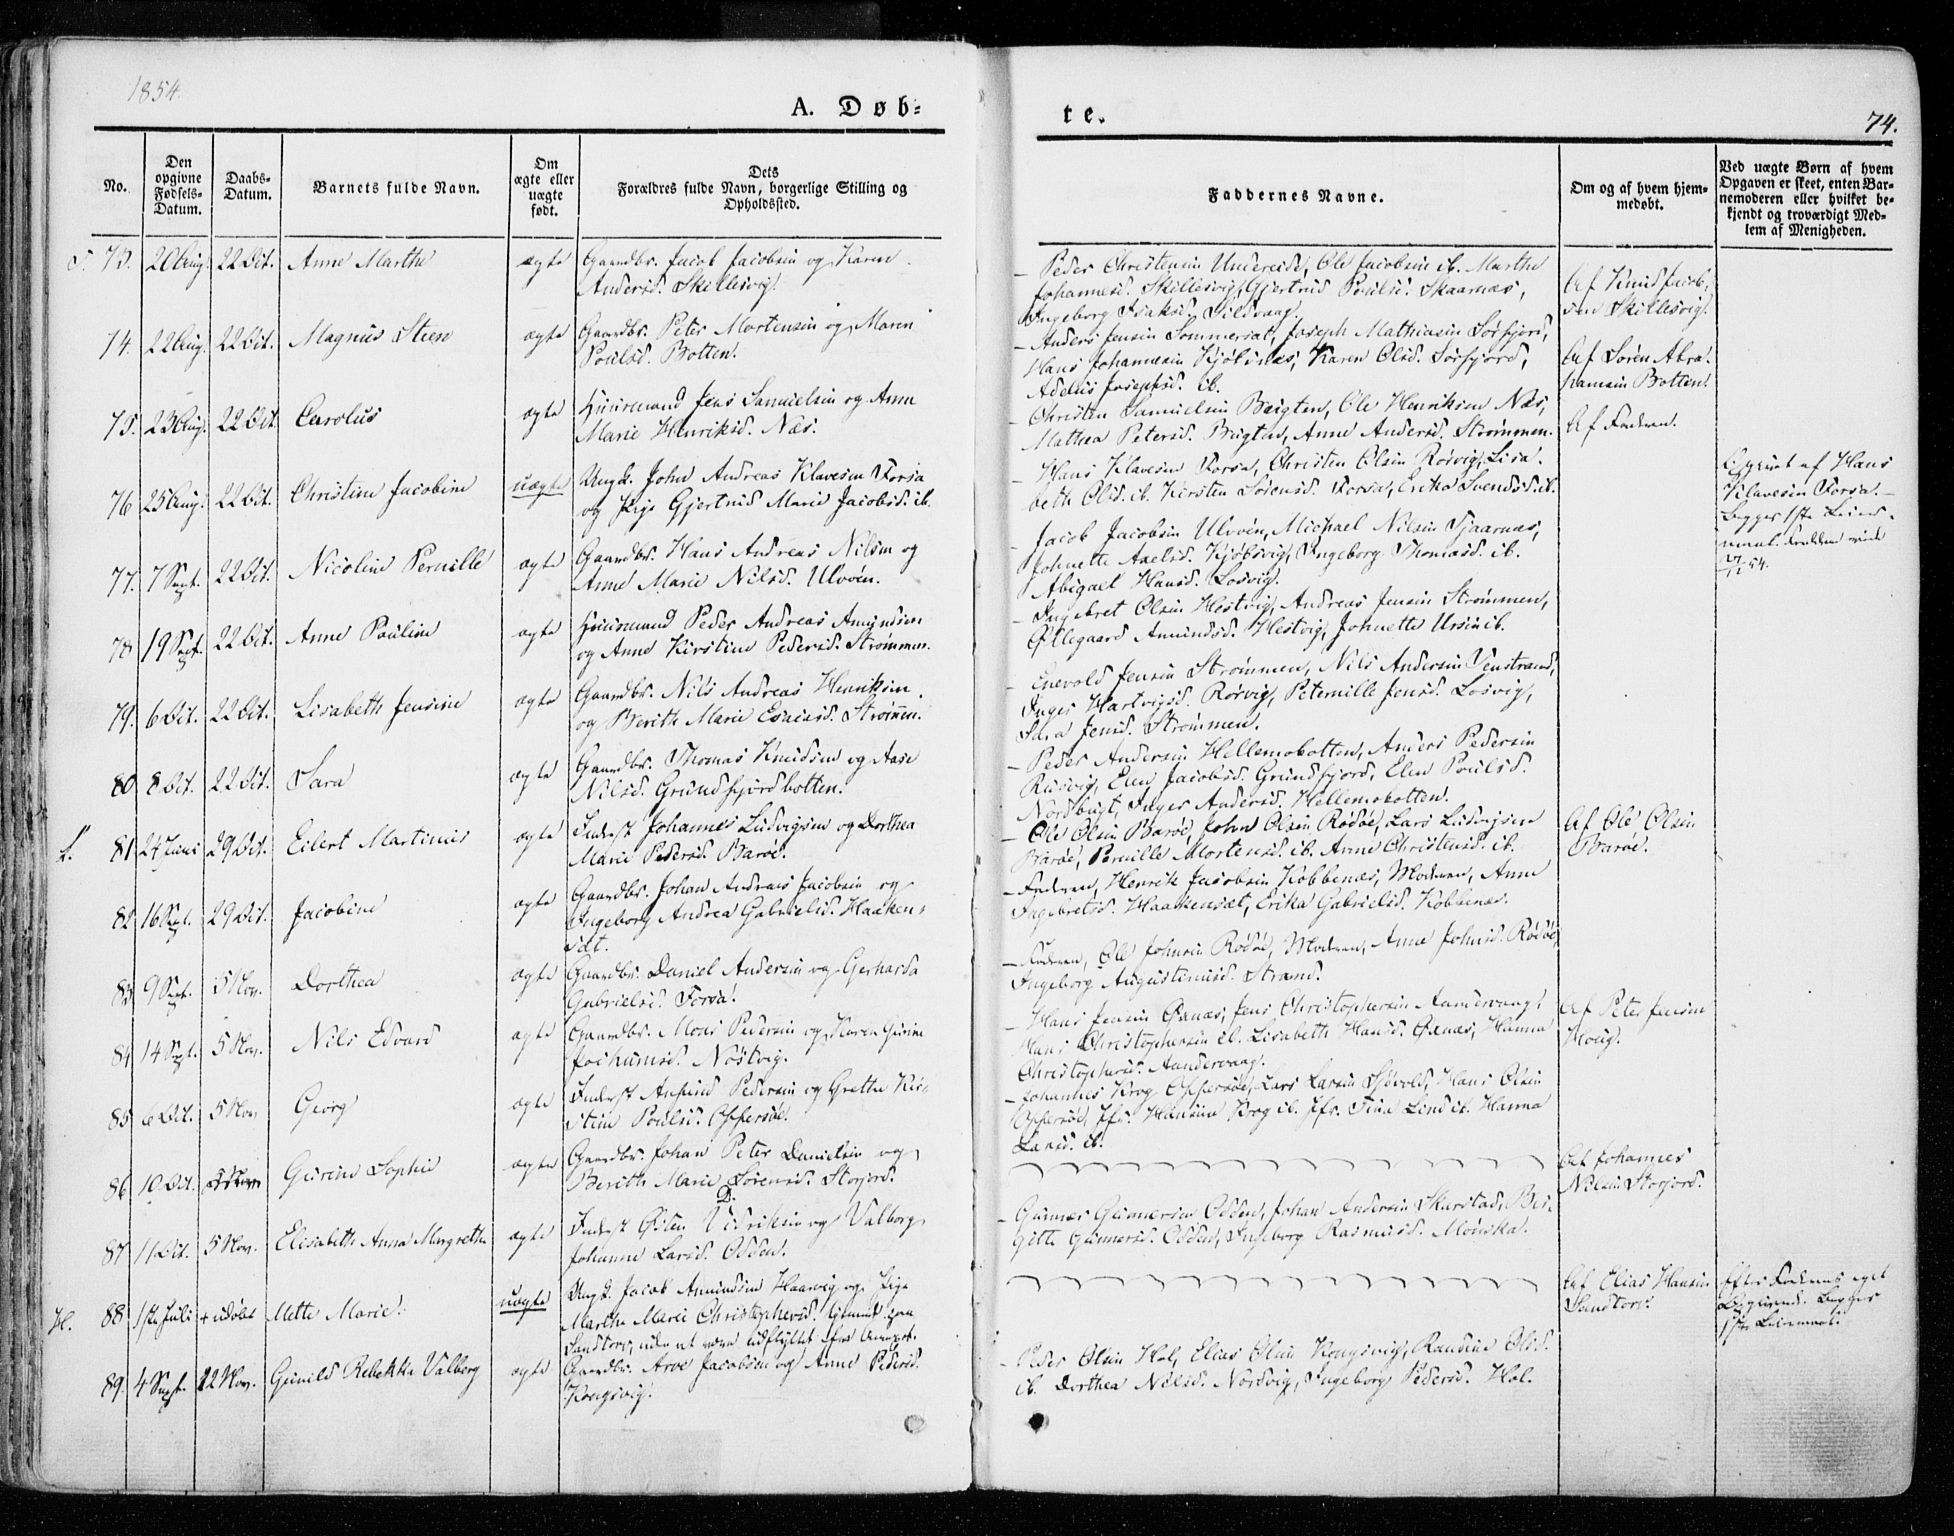 1854.
A. Døb-
te.
74.
No.
Den opgivne Fødsels-Datum.
Daabs-Datum.
Barnets fulde Navn.
Om ægte eller uægte født.
Dets Forældres fulde Navn, borgerlige Stilling og Opholdssted.
Faddernes Navne.
Om og af hvem hjem-medøbt.
Ved uægte Børn af hvem Opgaven er skeet, enten Bar-nemoderen eller hvilket be-kjendt og troværdigt Med-lem af Menigheden.
73. 20 Aug. 22 Oct. Anne Marthe ægte Gaardbr. Jacob Jacobsen og Karen
Andersd. Skillesvig.
Peder Christensen Undereide, Ole Jacobsen ib. Marthe
Johannesd. Skillesvig, Gjertrud Poulsd. Skaarnæs,
Ingeborg Isaksd. Sildvaag.
Af Knud Jacob-
sen Skillesvig.
74. 22 Aug. 22 Oct. Magnus Steen ægte Gaardbr. Peter Mortensen og Maren
Poulsd. Botten.
Anders Jensen Sommerset, Joseph Mathiasen Sørfjord,
Hans Johannesen Kjølnæs, Karen Olsd. Sørfjord,
Adelus Josephsd. ib.
Af Søren Abra-
hamsen Botten.
75. 23 Aug. 22 Oct. Carolus ægte Huusmand Jens Samuelsen og Anne
Marie Henriksd. Næs.
Christen Samuelsen Bugten, Ole Henriksen Næs,
Mathea Petersd. Bugten, Anne Andersd. Strømmen.
Af Faderen.
76 25 Aug. 22 Oct. Christine Jacobine uægte Ungk. John Andreas Klavesen Forsa
og Pige Gjertrud Marie Jacobsd. ib.
Hans Klavesen Forsa, Christen Olsen Rørvig, Lisa-
beth Olsd. ib. Kirsten Sørensd. Forsa, Erika Svendsd. ib.
Opgivet af Hans
Klavesen Forsa.
Begges 1ste Leier-
maal.
77. 7 Sept. 22 Oct. Nicoline Pernille ægte Gaardbr. Hans Andreas Nilsen og
Anne Marie Nilsd. Ulvøen.
Jacob Jacobsen Ulvøen, Michael Nilsen Tjaarnæs,
Johnette Axelsd. Kjøbsvig, Ingeborg Thomasd. ib.
Abigael Hansd. Losvig.
78 19 Sept. 22 Oct. Anne Pouline ægte Huusmand Peder Andreas Amundsen
og Anne Kirstine Pedersd. Strømmen.
Ingebret Olsen Hestvig, Andreas Jensen Strømmen,
Øllegaard Amundsd. Hestvig, Johnette Ursin ib.
79. 6 Oct. 22 Oct. Lisabeth Jensine ægte Gaardbr. Nils Andreas Henriksen
og Berith Marie Esaiasd. Strømen.
Enevold Jensen Strømmen, Nils Andersen Tenstrand,
Inger Hartvigsd. Rørvig, Peternille Jensd. Losvig,
Sara Jensd. Strømmen.
80. 8 Oct. 22 Oct. Sara ægte Gaardbr. Thomas Knudsen og Aase
Nilsd. Grundfjordbotten.
Peder Andersen Hellemobotten, Anders Pedersen
Rusvig, Elen Jacobsd. Grundfjord, Elen Poulsd.
Nordbugt, Inger Andersd. Hellemobotten.
81. 24 Juni 29 Oct. Eilert Martinus ægte Inderst Johannes Ludvigsen og Dorthea
Marie Pedersd. Barøe.
Ole Olsen Barøe, John Olsen Rødøe, Lars Ludvigsen
Barøe, Pernille Mortensd. ib. Anne Christensd. ib.
Af Ole Olsen
Barøe.
82 16 Sept. 29 Oct. Jacobine ægte Gaardbr. Johan Andreas Jacobsen og
Ingeborg Andrea Gabrielsd. Haaken-
sæt.
Faderen, Henrik Jacobsen Kobbenæs, Moderen, Anne
Ingebretsd. Haakensæt, Erika Gabrielsd. Kobbenæs.
83 9 Sept. 5 Nov. Dorthea ægte Gaardbr. Daniel Andersen og Gerharda
Gabrielsd. Forsa.
Faderen, Ole Johnsen Rødøe, Moderen, Anne Johnsd. Rødøe,
Ingeborg Augustinusd. Strand.
84 14 Sept. 5 Nov. Nils Edvard ægte Gaardbr. Mons Pedersen og Karen Gurine
Jochumsd. Nøstvig.
Hans Jensen Oxnæs, Jens Christophersen Aandervaag,
Hans Christophersen ib. Lisabeth Hansd. Oxnæs, Hanna
Christophersd. Aandervaag.
Af Peter Jensen
Houg.
85 6 Oct. 5 Nov. Georg ægte Inderst Amund Pedersen og Grethe Kir-
stine Poulsd. Offersøe.
Johannes Krog Offersøe, Lars Larsen Sjøvold, Hans Olsen
Offersøe, Jfr. Hansine Krog ib. Jfr. Tina Lind ib. Hanna
Larsd. ib.
86 10 Oct. 5 Nov. Gurine Sophie ægte Gaardbr. Johan Peter Danielsen og
Berith Marie Sørensd. Storjord.
Af Johannes
Nilsen Storjord.
87 11 Oct. 5 Nov. Elisabeth Anna Margrethe ægte Inderst Østen Didriksen og Valborg
Johanne Larsd. Odden.
Gunner Gunnersen Odden, Johan Andersen Skarstad, Bir-
gitte Gunnersd. Odden, Ingeborg Rasmusd. Mønska.
H. 88 1ste Juli + udøbt Mette Marie. uægte Ungk. Jacob Amundsen Haarvig og Pige
Marthe Marie Christophersd.
Af Elias Hansen
Sandtorv.
Efter Faderens eget
Opgivende. Begges
1ste Leiermaal.
89. 4 Sept. 12 Nov. Gunild Rebekka Valborg ægte Gaardbr. Arve Jacobsen og Anne Pedersd.
Kongsvig.
Peder Olsen Hol, Elias Olsen Kongsvig, Randine Olsd.
ib. Dorthea Nilsd. Nordvig, Ingeborg Pedersd. Hol.